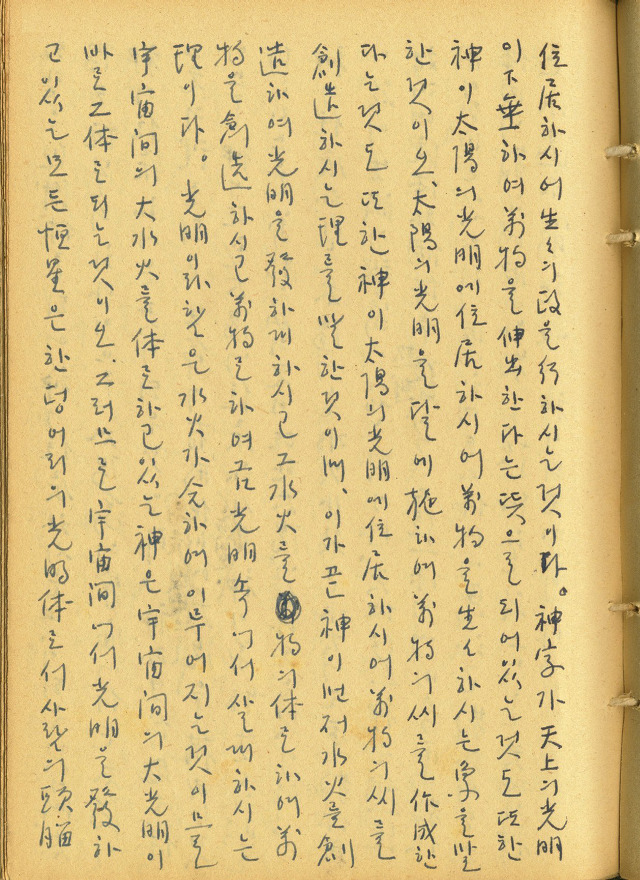 住居하시어 生々의 政을 行하시는 것이다。 神字가 天上의 光明
이 下垂하여 萬物을 伸出한다는 뜻으로 되어 있는 것도 또한
神이 太陽의 光明에 住居하시어 萬物을 生々하시는 象을 말
한 것이오、太陽의 光明을 달에 施하여 萬物의 씨를 作成한
다는 것도 또한 神이 太陽의 光明에 住居하시어 萬物의 씨를
創造하시는 理를 말한 것이며、이가끈 神이 먼저 水火를 創
造하여 光明을 發하게 하시고 그 水火를 物의 体로 하여 萬
物을 創造하시고 萬物로 하여금 光明 속에서 살게 하시는
理이다。 光明이라 함은 水火가 合하여 이루어지는 것이므로
宇宙間의 大水火를 体로 하고 있는 神은 宇宙間의 大光明이
바로 그 体로 되는 것이오、그러므로 宇宙間에서 光明을 發하
고 있는 모든 恒星은 한 덩어리의 光明体로서 사람의 頭腦